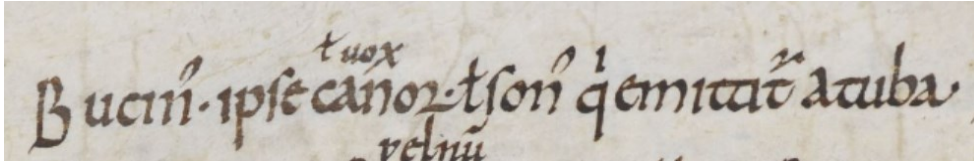 ł uox
Bucin᷒· ipse canor· ł son᷒ q̇ emittit᷑ a tuba·
velnū